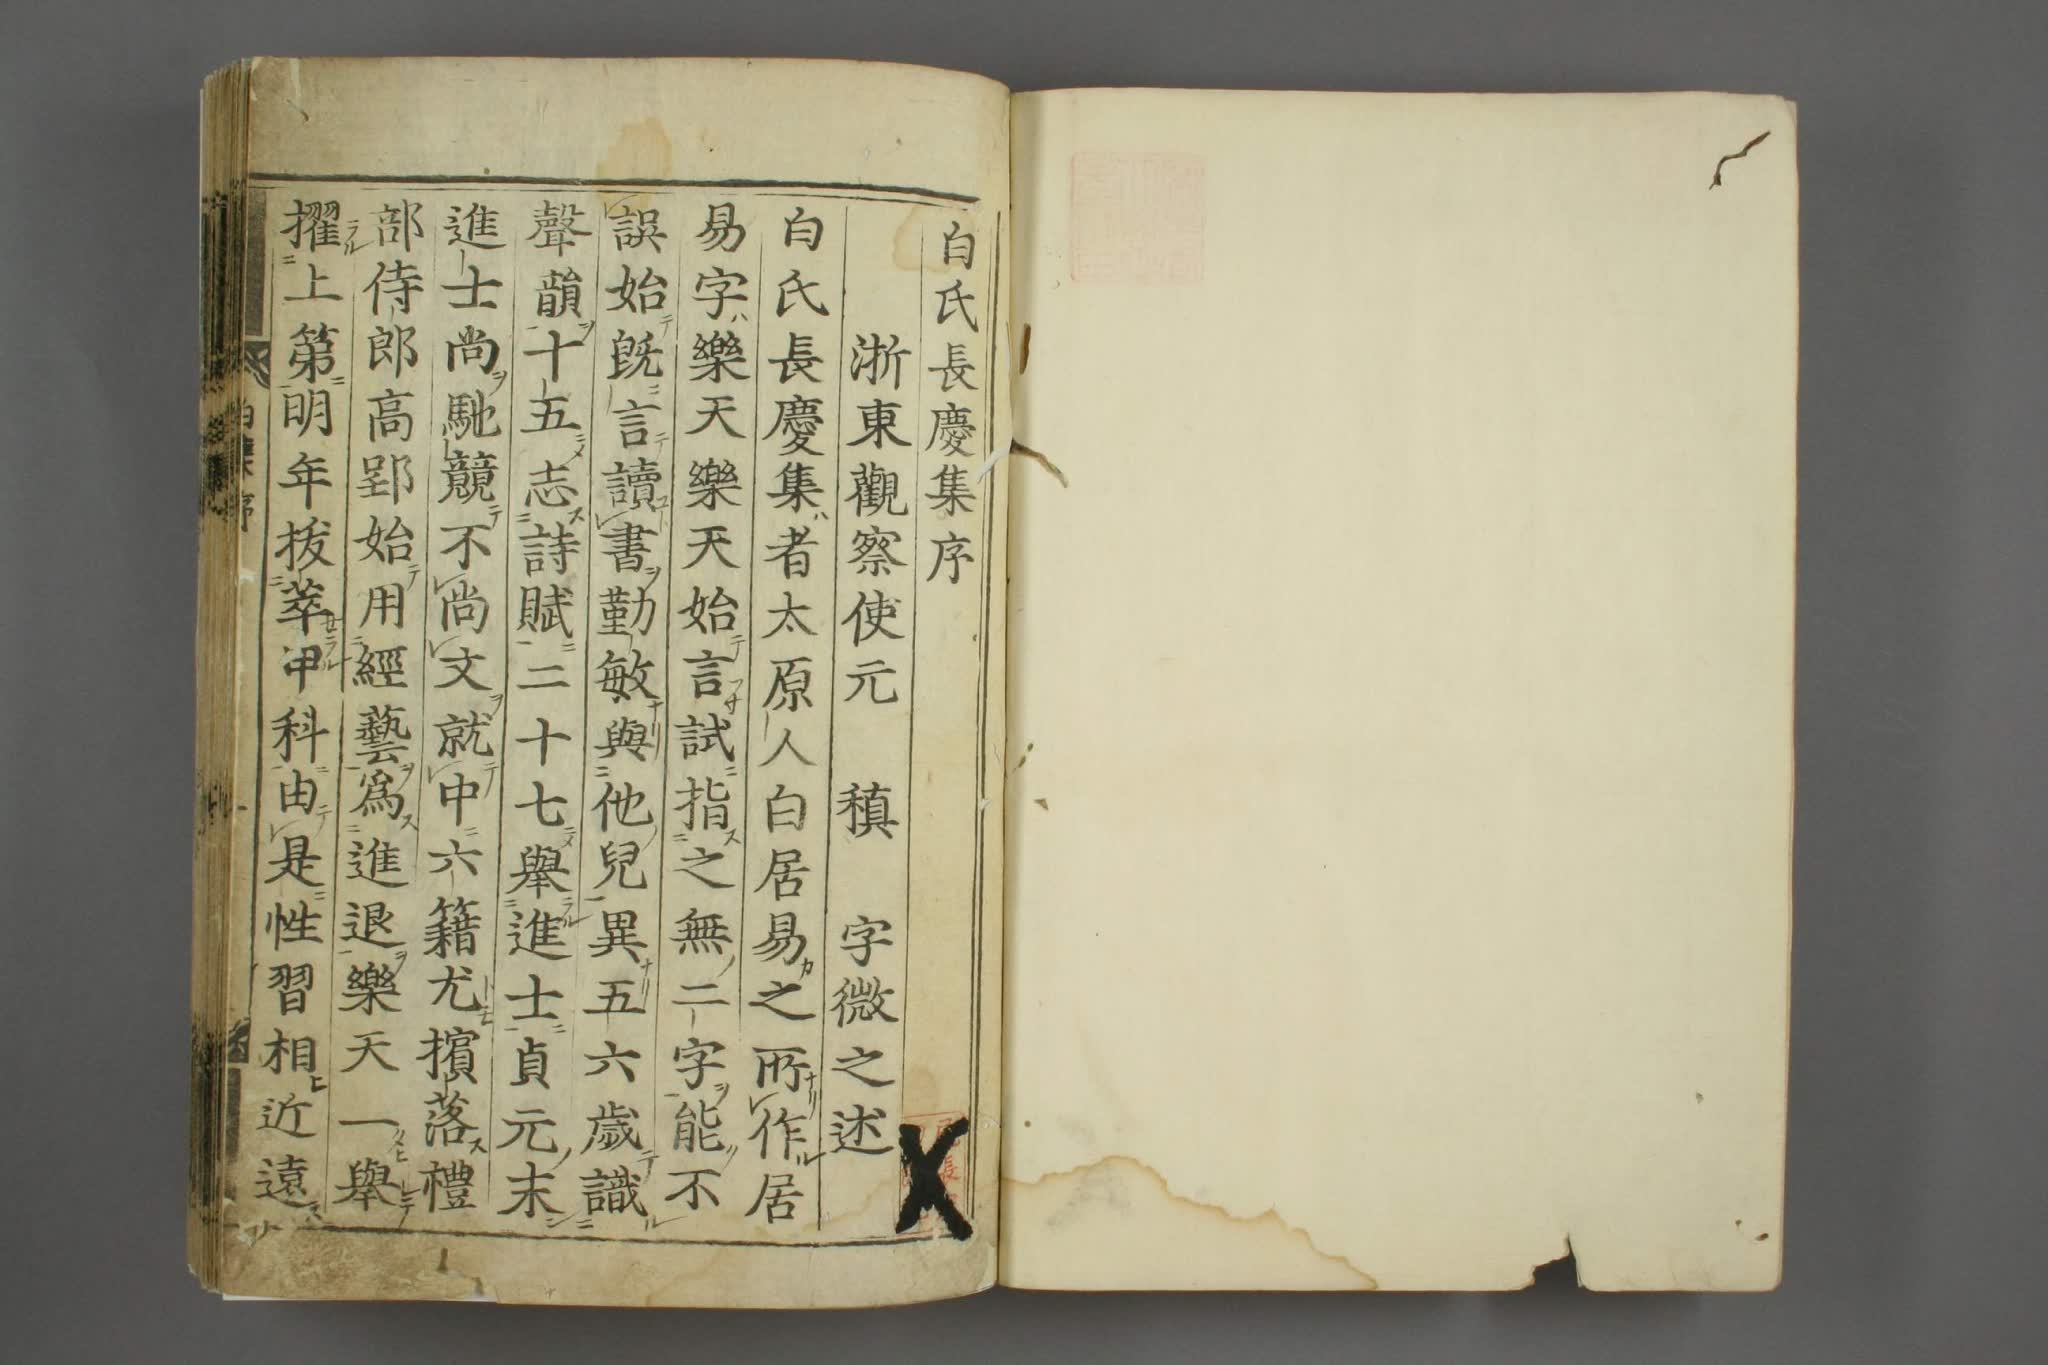 白氏長慶集序
浙東觀察使元　稹　字微之述
白氏長慶集者太原人白居易之所作居
易字樂天樂天始言試指之無二字能不
誤始旣言讀書勤敏與他兒異五六歲識
聲韻十五志詩賦二十七舉進士貞元末
進士尚馳競不尚文就中六籍尤擯落禮
部侍郎高郢始用經藝爲進退樂天一舉
擢上第明年拔萃甲科由是性習相近遠